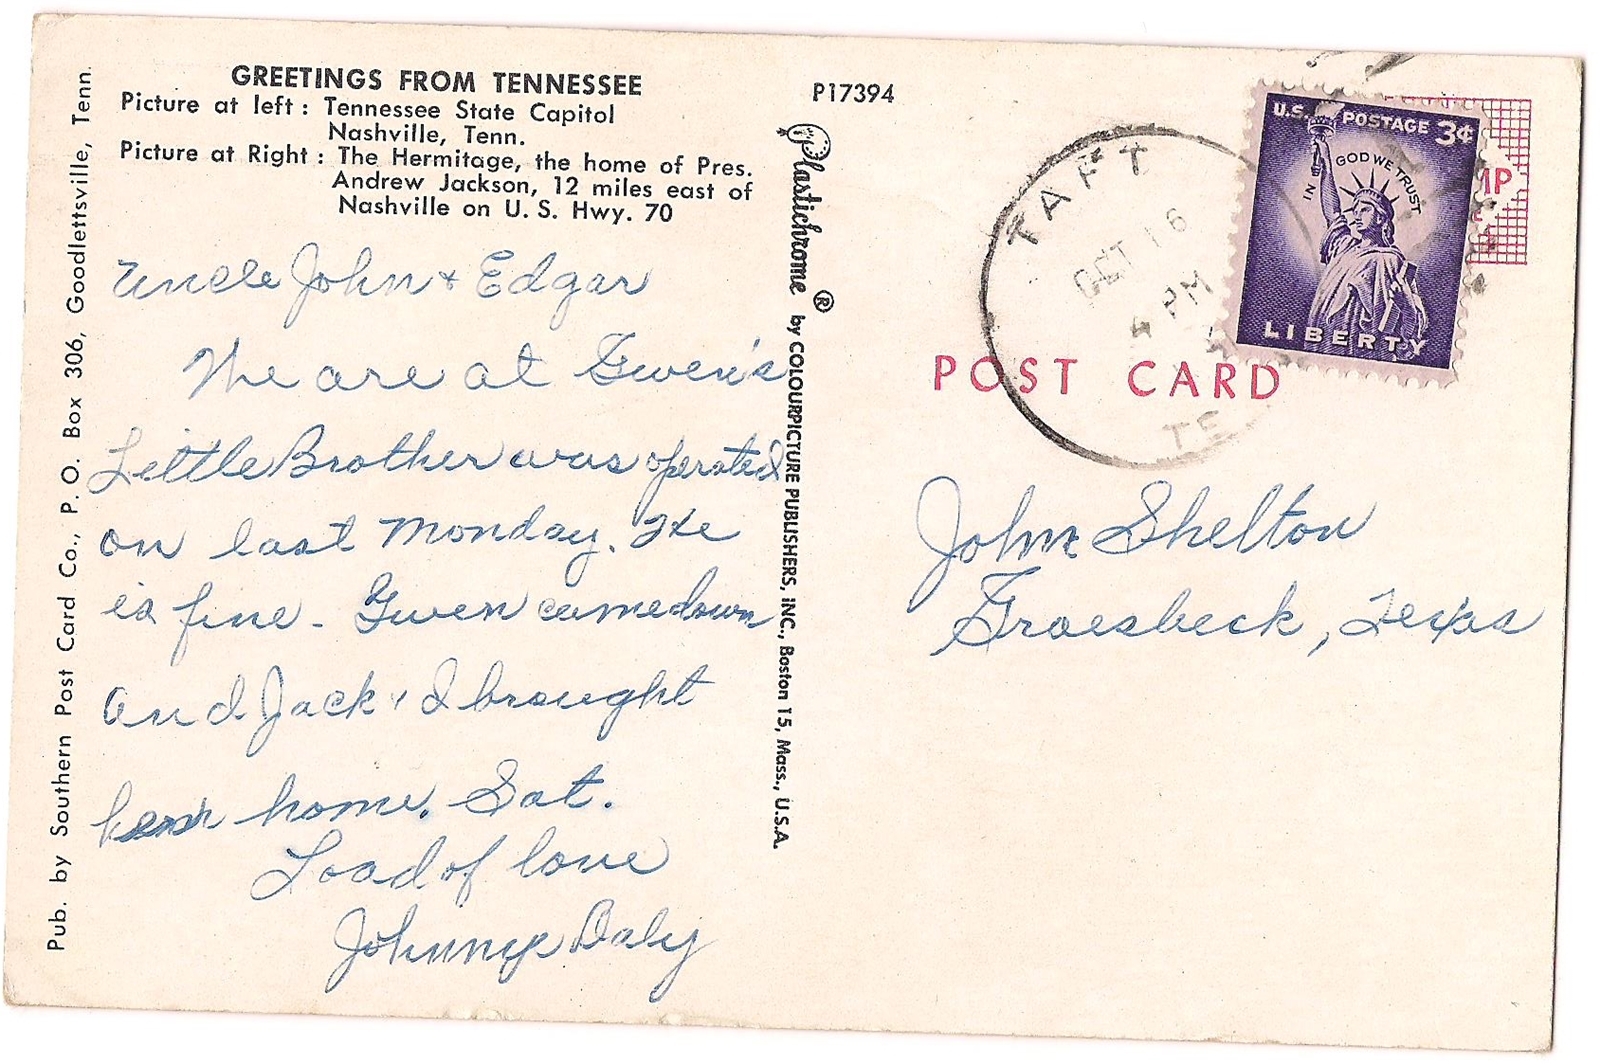 GREETINGS FROM TENNESSEE
Picture at left : Tennessee State Capitol
Nashville, Tenn.
Picture at Right : The Hermitage, the home of Pres.
Andrew Jackson, 12 miles east of
Nashville on U. S. Hwy. 70
Pub. by Southern Post Card Co., P. O. Box 306, Goodlettsville, Tenn.
Uncle John + Edgar
We are at Gwen's
Little Brother was operated
on last Monday. He
is fine - Gwen came down
and Jack & I brought
her home. Sat.
Load of love
Johnnye Daly
Plastichrome ® by COLOURPICTURE PUBLISHERS, INC., Boston 15, Mass., U.S.A.
P17394
TAFT
OCT 16
4 PM
TE
U.S. POSTAGE 3¢
IN GOD WE TRUST
LIBERTY
POST CARD
John Shelton
Groesbeck, Texas